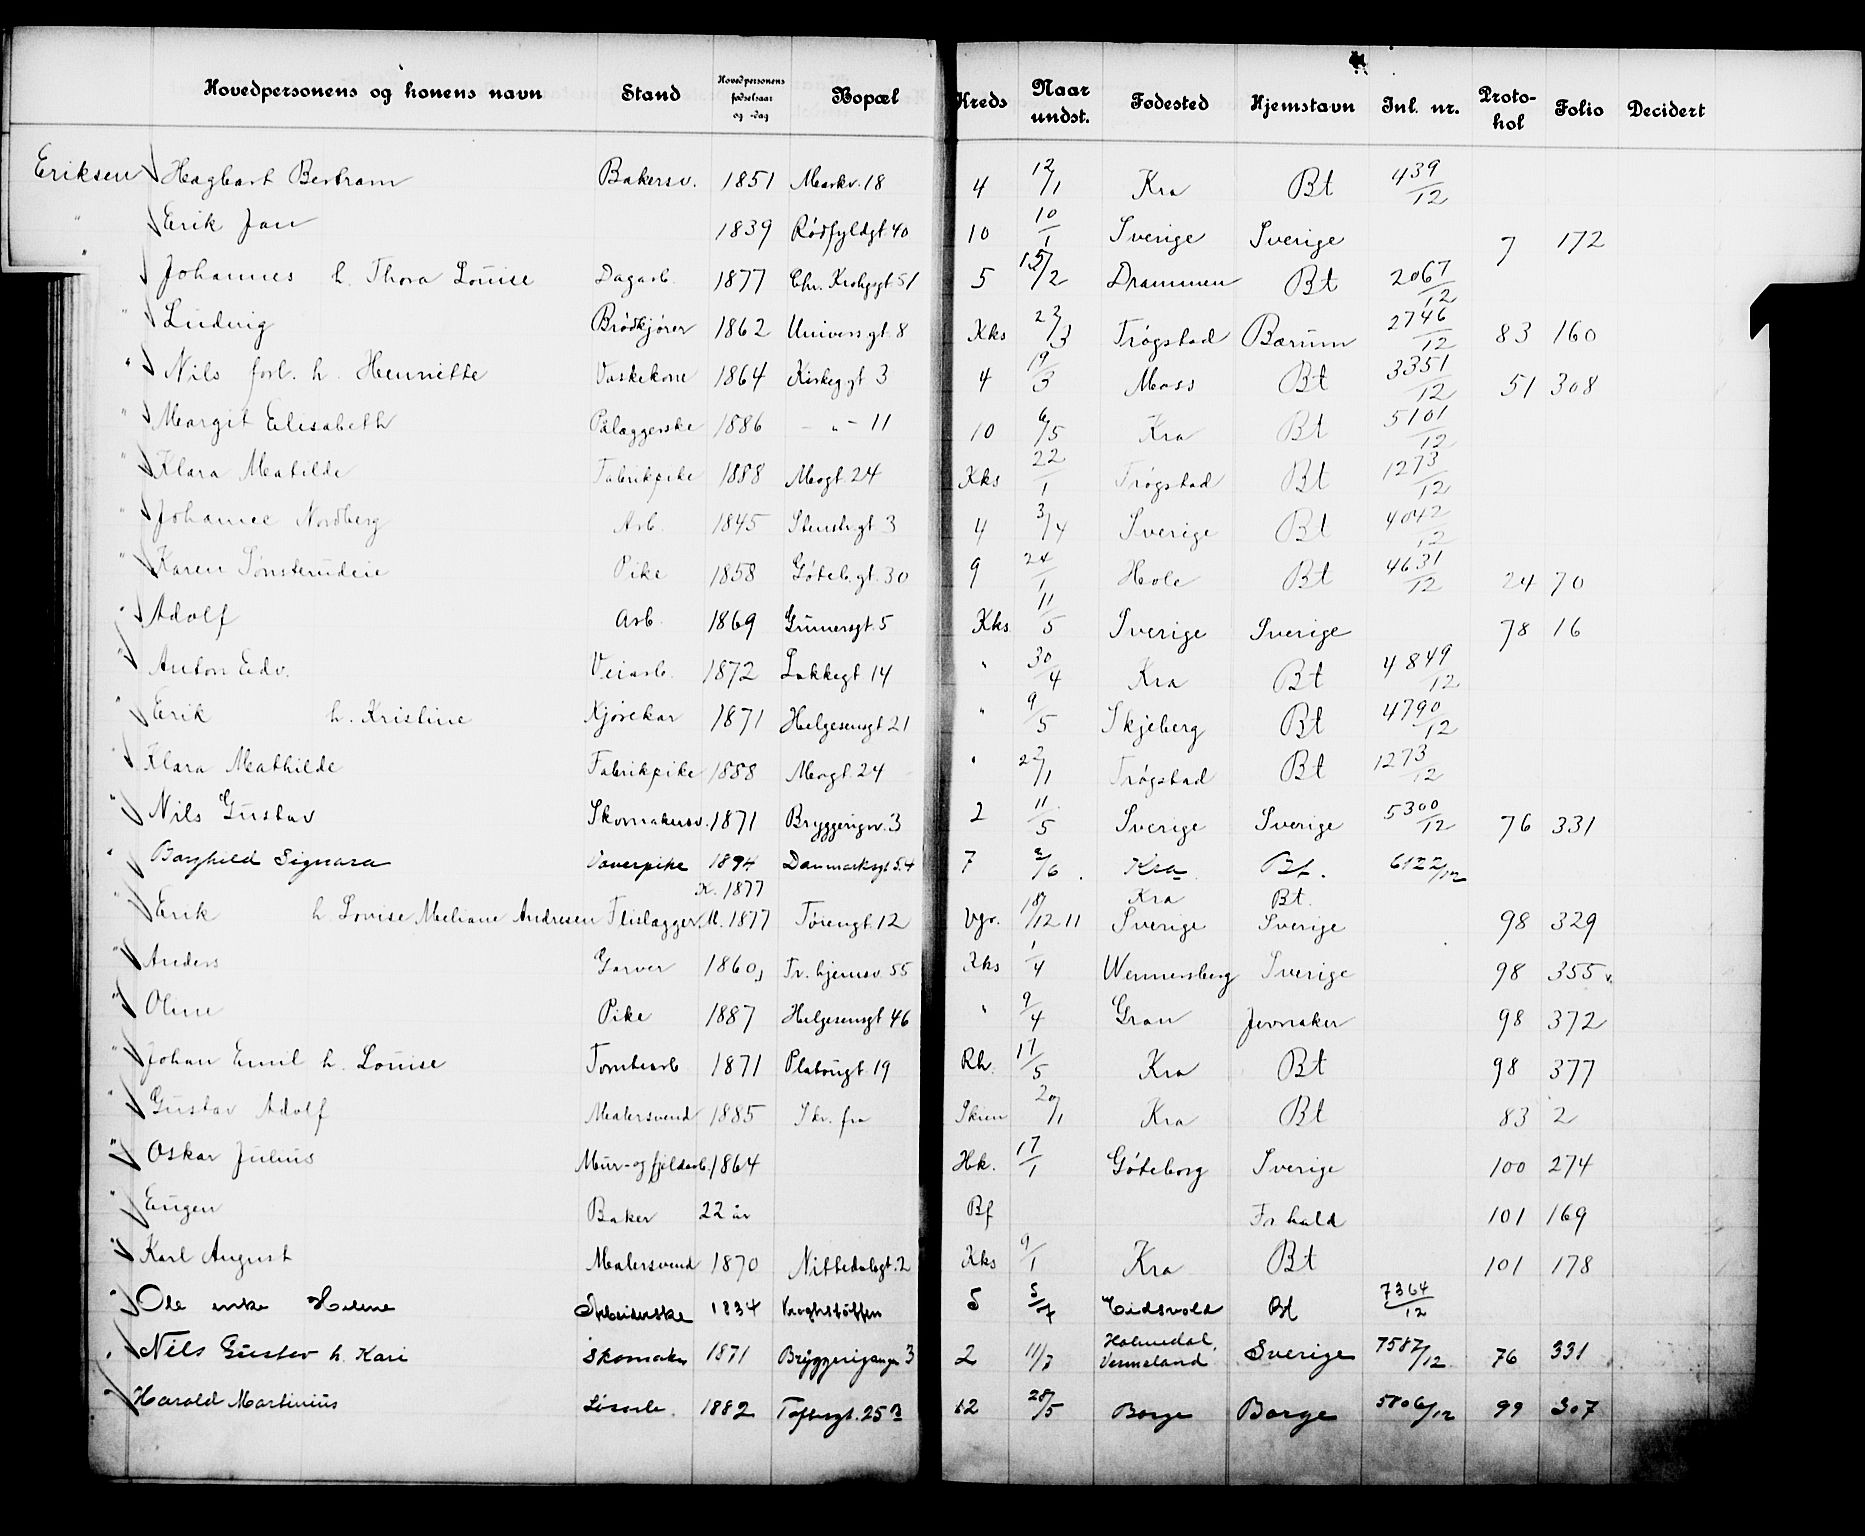 Hovedpersonens og konens navn Stand Hovedpersonens fødselsaar og -dag Bopæl Kreds Naar undst. Fødested Hjemstavn Jnl. nr. Protokol Folio Decidert
Eriksen Hagbart Bertram Bakersv. 1851 Markv. 18 4 12/1 Kra Bt 439/12
" Erik Jan 1839 Rødfyldgt 40 10 10/1 Sverige Sverige 7 172
" Johannes h. Thora Louise Dagarb. 1877 Chr. Krohgsgt 51 5 /2 Drammen Bt 2067/12
" Ludvig Brødkjører 1862 Universgt 8 Kks 22/3 Trøgstad Bærum 2746/12 83 160
" Nils forl. h. Henriette Vaskekone 1864 Kirkeggt 3 4 19/3 Moss Bt 3351/12 51 308
" Margit Elisabeth Pålæggerske 1886 - " - 11 10 6/5 Kra Bt 5101/12
" Klara Matilde Fabrikpike 1888 Mogt. 24 Kks 22/1 Trøgstad Bt 1273/12
" Johanne Nordberg Arb. 1845 Stenstrgt 3 4 3/4 Sverige Bt 4042/12
" Karen Sønsterudeie Pike 1858 Gøtebgt. 30 9 24/1 Hole Bt 4631/12 24 70
" Adolf Arb. 1869 Grünersgt. 5 Kks. 11/5 Sverige Sverige 78 16
" Anton Edv. Veiarb. 1872 Lakkegt 14 " 30/4 Kra Bt 4849/12
" Erik h. Kristine Kjørekar 1871 Helgesensgt 21 " 9/5 Skjeberg Bt 4790/12
" Klara Mathilde Fabrikpike 1888 Mogt. 24 " 22/1 Trøgstad Bt 1273/12
" Nils Gustav Skomakersv. 1871 Bryggerigv. 3 2 11/5 Sverige Sverige 5300/12 76 331
" Borghild Signora Væverpike 1894 Danmarksgt 54 7 /6 Kra Bt. 6122/12
K. 1877 Kra Bt.
" Erik h. Lovise Meliane Andresen Flislægger M. 1877 Tørengt. 12 Vgr. 18/12 11 Sverige Sverige 98 329
" Anders Garver 1860 Fr. hjemsv. 55 Kks 1/4 Wennersberg Sverige 98 355 v.
" Oline Pike 1887 Helgesensgt 46 " 9/4 Gran Jevnaker 98 372
" Johan Emil h. Louise Tomtearb. 1871 Platougt 19 Rh. 17/5 Kra Bt 98 377
" Gustav Adolf Malersvend 1885 Skr. fra Skien 20/1 Kra Bt 83 2
" Oskar Julius Mur- og fjeldarb. 1864 Hk. 17/1 Gøteborg Sverige 100 274
" Eugen Baker 22 år Bf Fr hald 101 169
" Karl August Malersvend 1870 Nittedalsgt. 2 Kks 9/1 Kra Bt 101 178
" Ole enke Helene Arbeiderske 1834 Kroghstøtten 5 5/7 Eidsvold Bt 7364/12
" Nils Gustav h. Kari Skomaker 1871 Bryggerigangen 3 2 11/7 Holmedal, Vermeland Sverige 7587/12 76 331
" Harald Martinius Løsarb. 1882 Toftesgt. 25 12 28/5 Borge Borge 5806/12 99 307